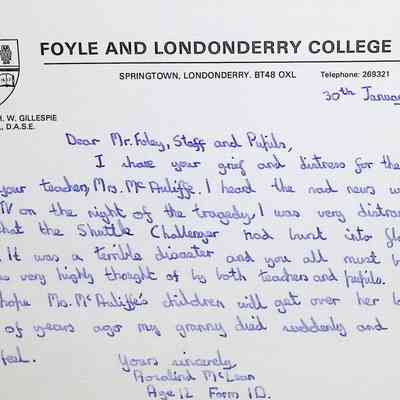 FOYLE AND LONDONDERRY COLLEGE
SPRINGTOWN, LONDONDERRY. BT48 OXL Telephone: 269321
H. W. GILLESPIE
D.A.S.E.
30th January
Dear Mr. Foley, Staff and Pupils,
I share your grief and distress for the
your teacher, Mrs. McAuliffe. I heard the sad news
TV on the night of the tragedy. I was very
that the Shuttle Challenger had burst into
It was a terrible disaster and you all must
very highly thought of by both teachers and pupils.
hope Mrs. McAuliffe's children will get over her
of years ago my granny died suddenly and
feel.
Yours sincerely,
Rosalind McLean
Age 12 Form 1D.